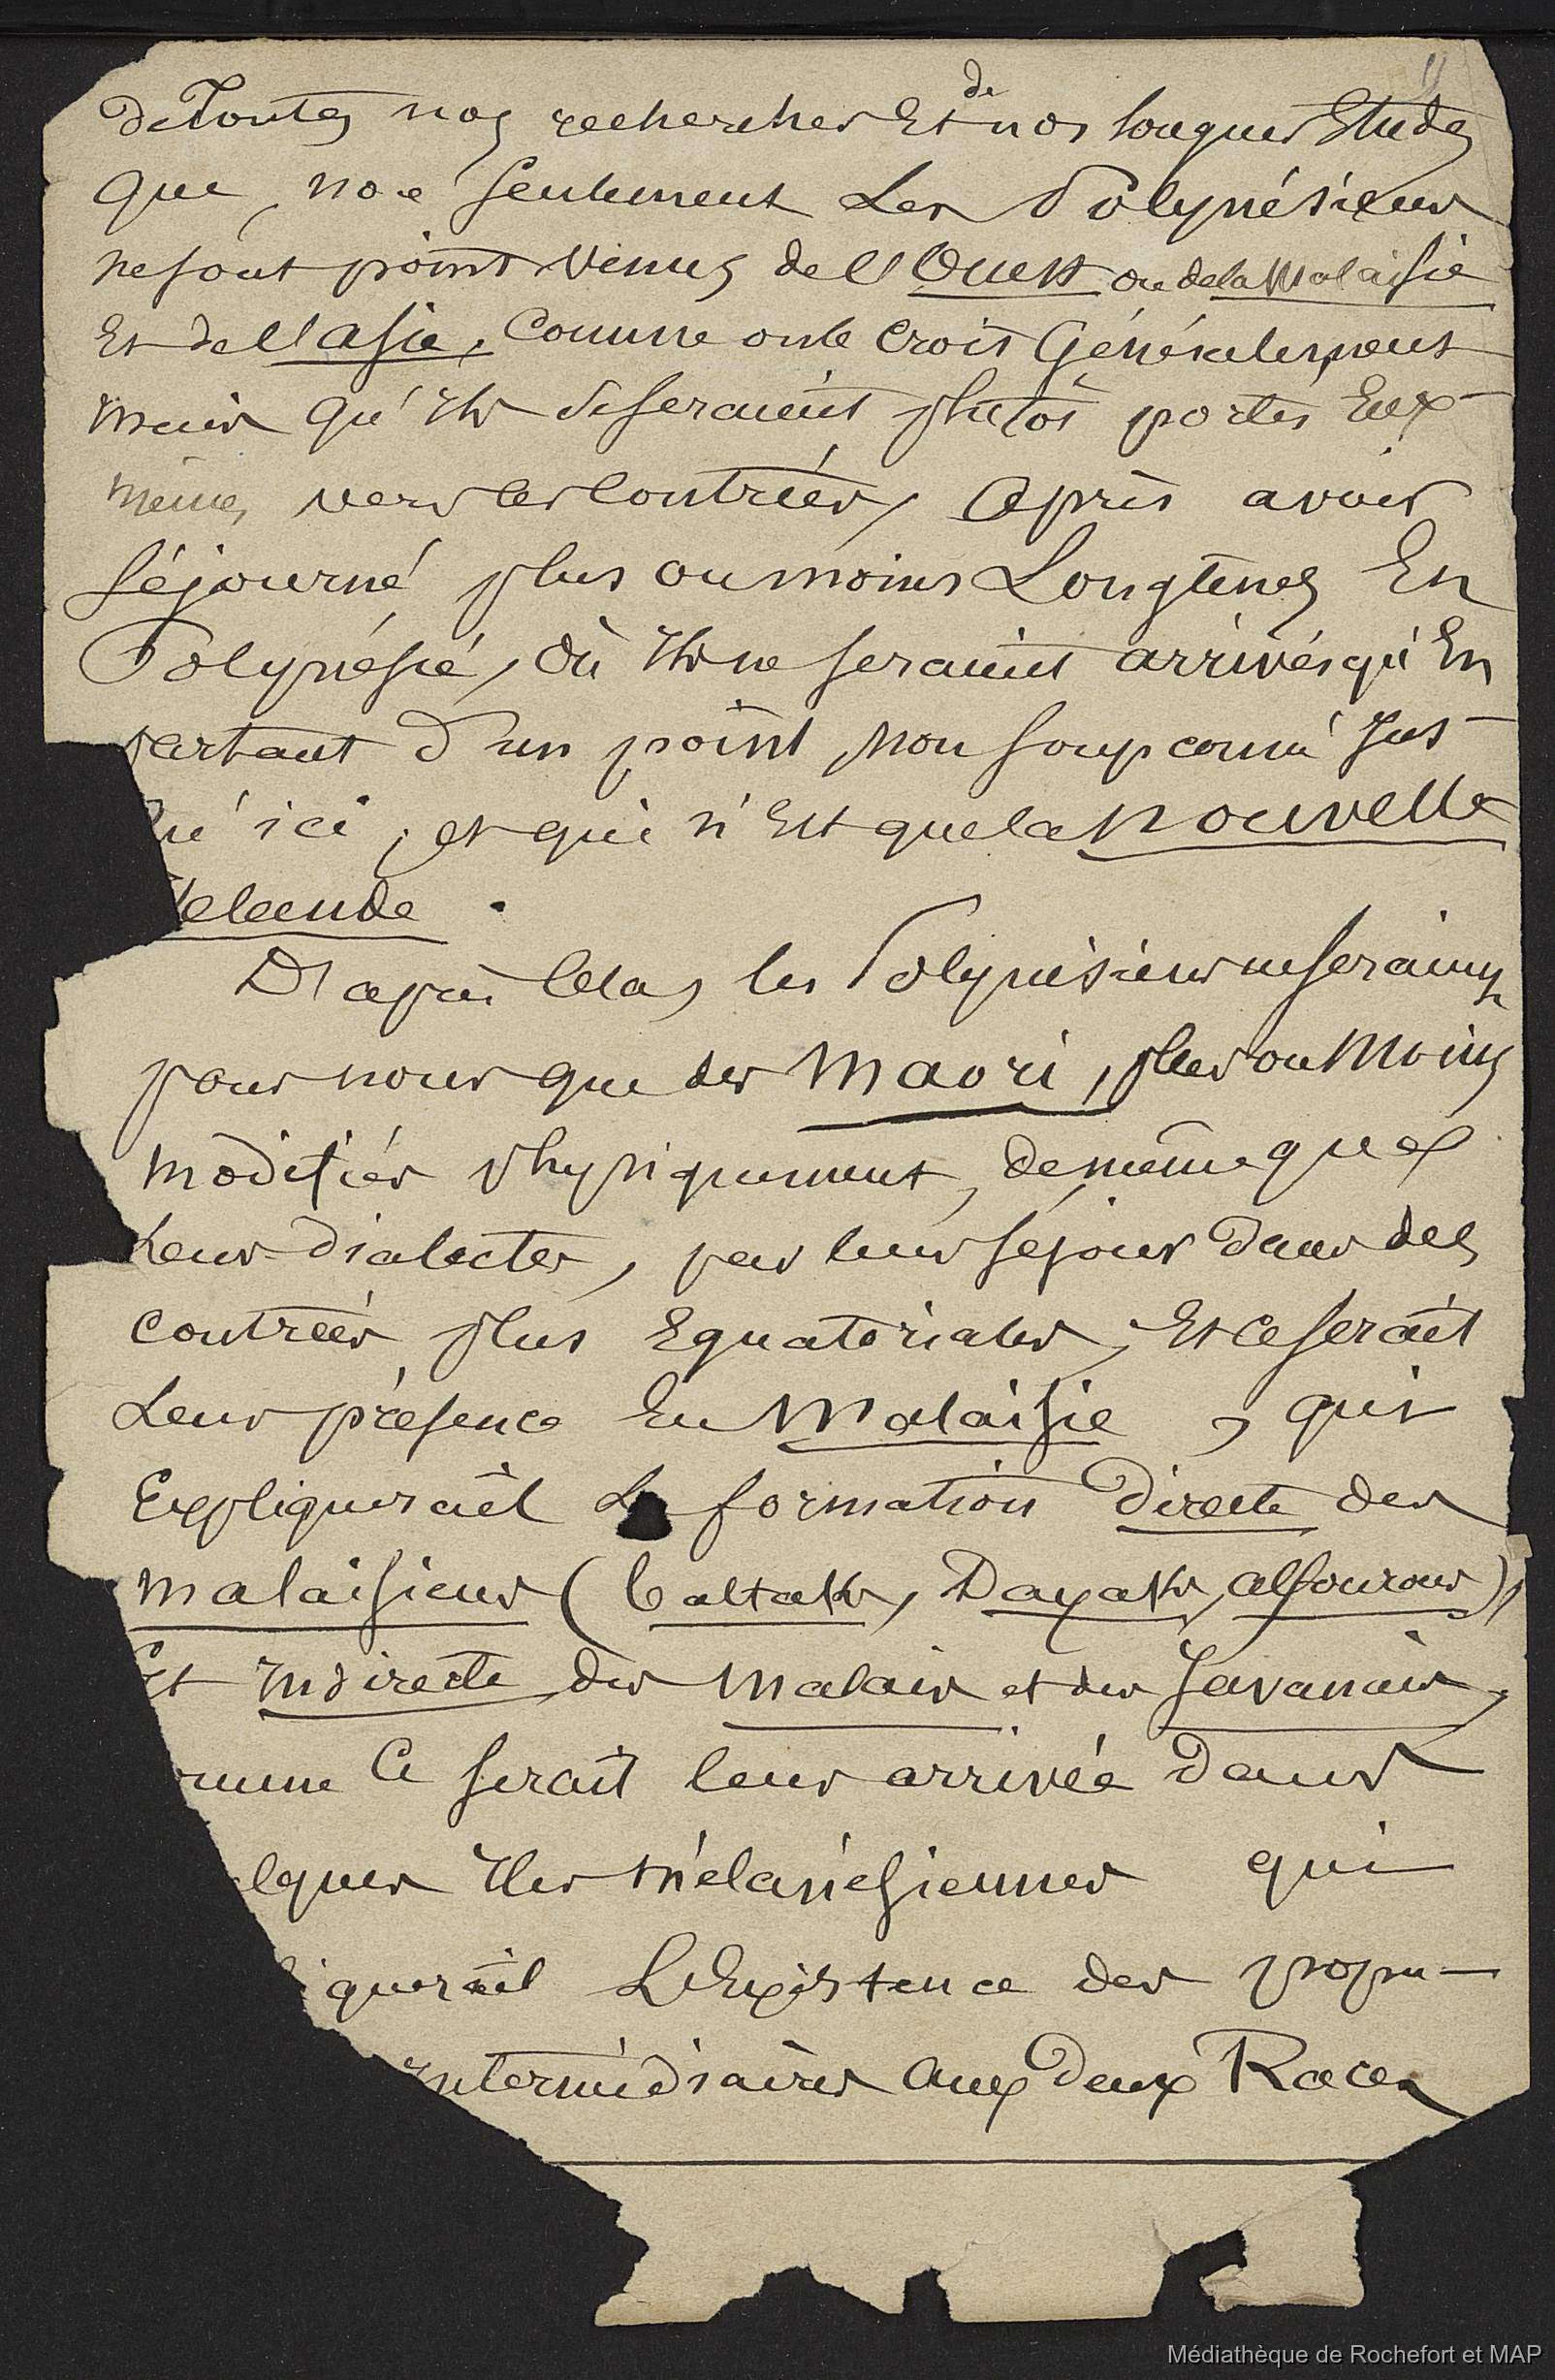 de
de Toutes nos recherches Et nos longues Etudes
Que, non seulement Les Polynésiens
ne sont point venus de l'Ouest ou de la Malaisie
Et de l'asie, Comme on le Croit Généralement
mais qu'Ils se seraient plutôt portés Eux-
mêmes vers ces contrées, Après avoir
séjourné plus ou moins Longtems En
Polynésie, où Ils ne seraient arrivés qu'En
partant d'un point non soupçonné Jus-
qu'ici, et qui n'Est que la Nouvelle
Zelande.
D'après Cela, les Polynésiens ne seraient
pour nous que des Maori, plus ou Moins
modifiés physiquement, de même que
Leurs dialectes, par leur séjour dans des
contrées plus Equatoriales, Et ce serait
Leur présence En Malaisie, qui
Expliquerait La formation directe des
Malaisiens (battaks, Dayaks, alfourous),
Et Indirecte des Malais et des Javanais,
omme Ce serait leur arrivée dans
elques Iles mélanésiennes qui
iquerait L'Existence des popu-
Intermédiaires aux deux Races
Médiathèque de Rochefort et MAP